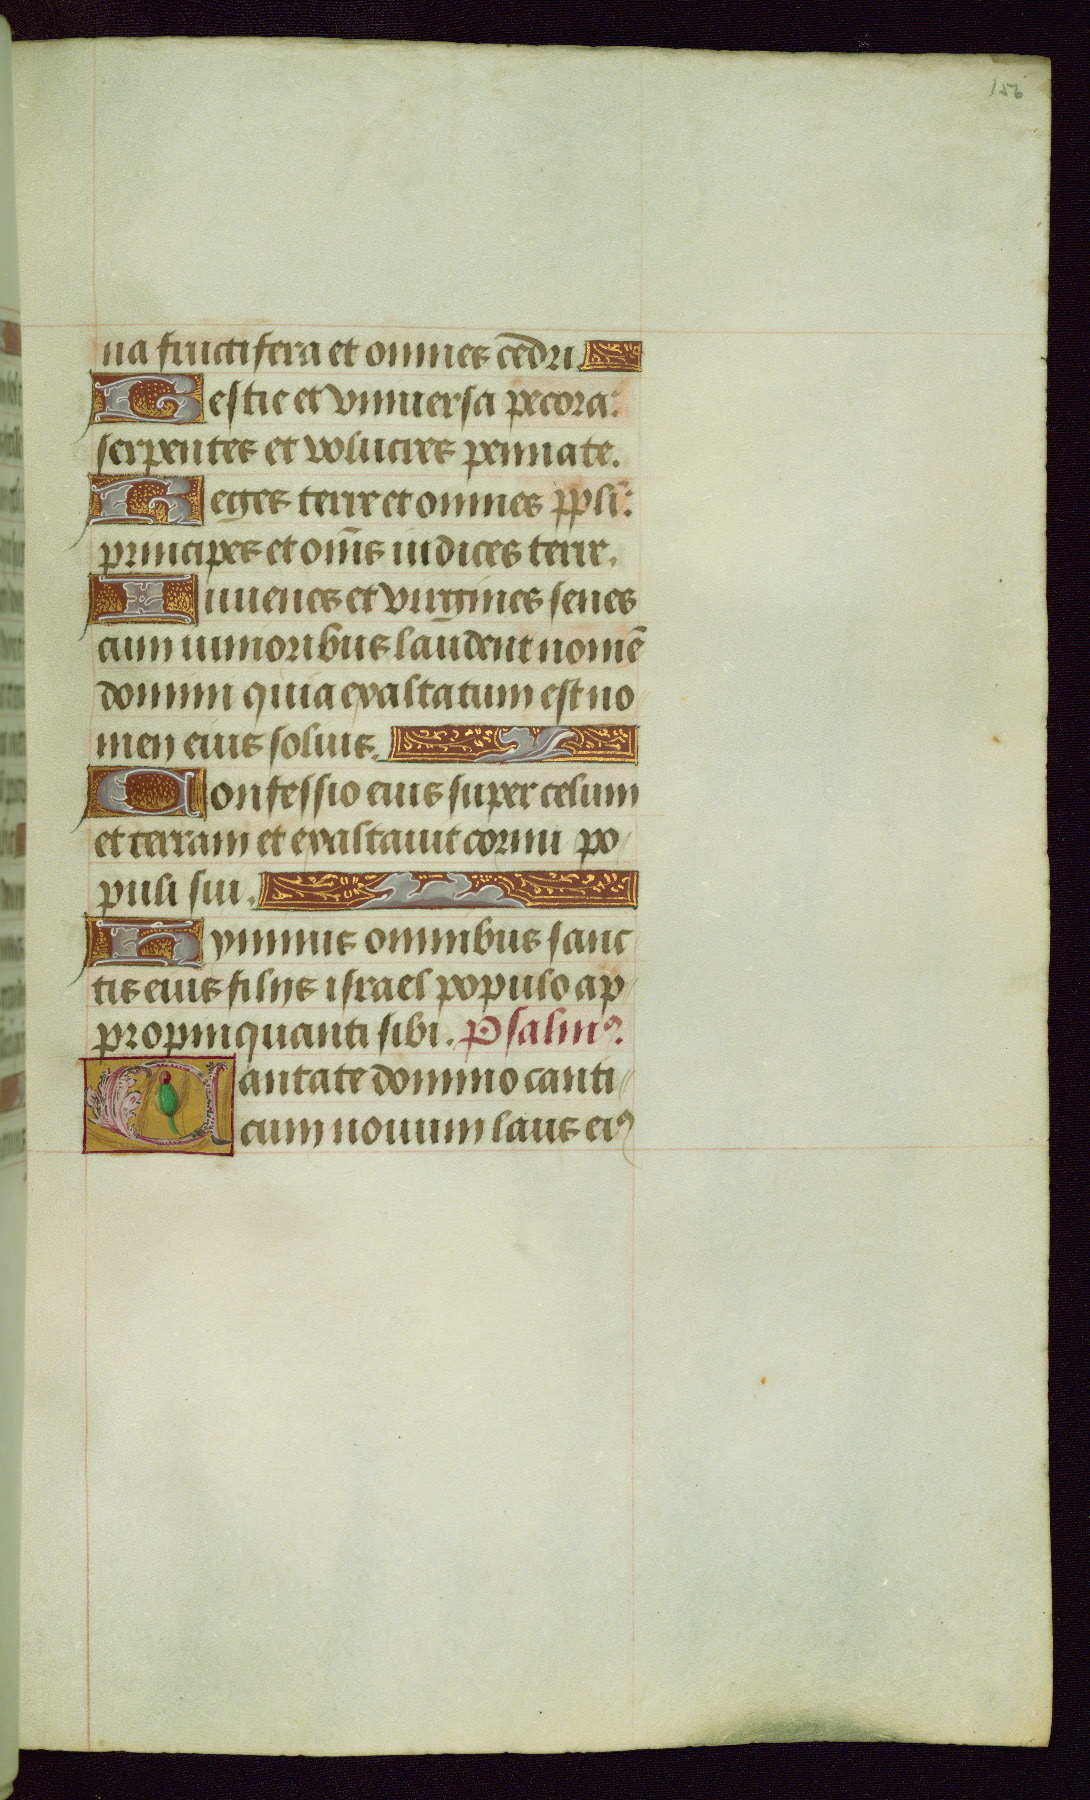 156
na fructifera et omnes cedri
Bestie et vniuersa pecora:
serpentes et volucres pennate.
Reges terre et omnes ppl̄i:
principes et om̄s iudices terre.
Iuuenes et virgines senes
cum iunioribus laudent nomē
domini quia exaltatum est no
men eius solius.
Confessio eius super celum
et terram et exaltauit cornu po
puli sui.
Hymnus omnibus sanc
tis eius filijs israel populo ap
propinquanti sibi. Psalmꝰ.
Cantate domino canti
cum nouum laus eiꝰ